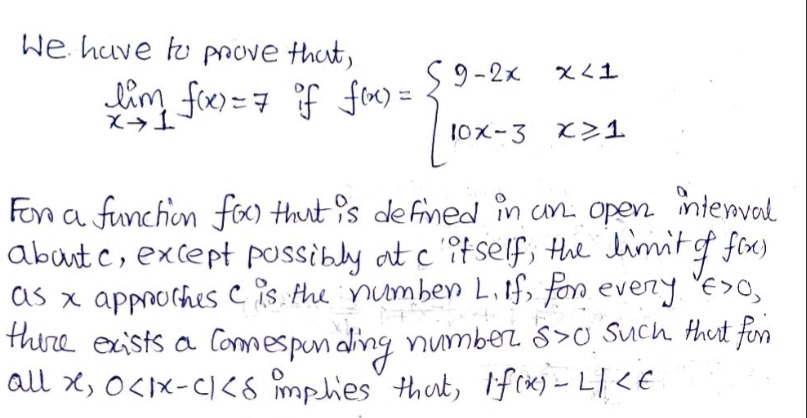 We have to prove that,
lim f(x) = 7 if f(x) = { 9-2x x<1
x→1
10x-3 x≥1
For a function f(x) that is defined in an open interval
about c, except possibly at c itself, the limit of f(x)
as x approches c is the number L, if, for every ε>0,
there exists a corresponding number δ>0 such that for
all x, 0<|x-c|<δ implies that, |f(x) - L| < ε